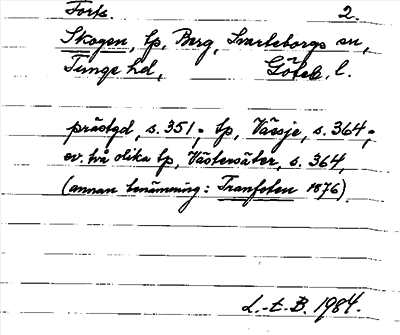 Forts. 2.
Skogen, tp, Berg, Svarteborgs sn,
Tunge hd, Göteb. l.
prästgd, s. 351; tp, Vässje, s. 364;
ev. två olika tp, Västersäter, s. 364,
(annan benämning: Tranfoten 1876).
L.-t.-B. 1984.